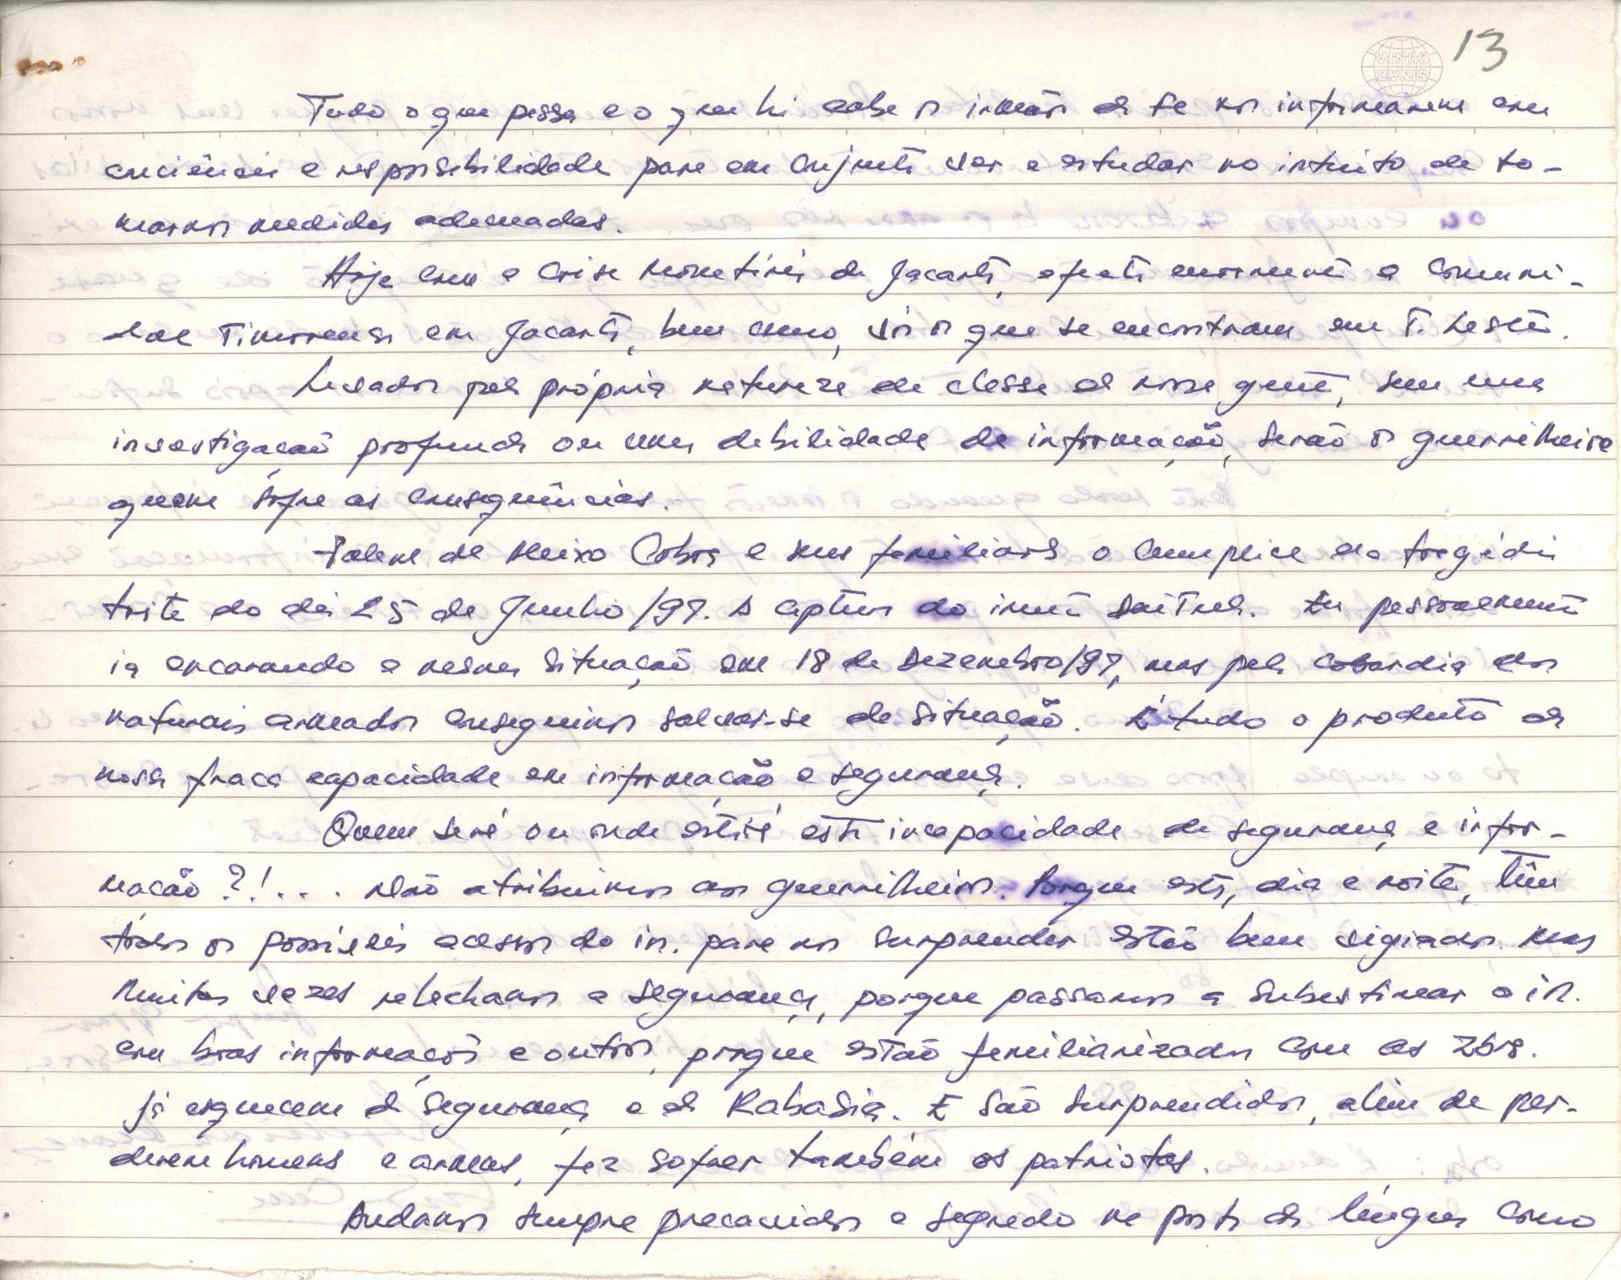 13
Tudo o que passa e o que hi cabe os irmãos de se nos informarem com
consciência e responsabilidade para em conjunto ver e estudar no intuito de to-
marmos medidas adecuadas.
Hoje com a crise monetária de Jacarta, afecta enormemente a comuni-
dade Timorense em Jacarta, bem como, vós os que se encontram em T. Leste.
Levados pela própria natureza de classe da nossa gente, sem uma
investigação profunda ou uma debilidade de informação, serão os guerrilheiros
quem sofre as consequências.
Falem de Meixo Cobra e seus familiares o cumplice da tragédia
triste do dia 25 de Junho/97. A captura do irmão Saituel. Eu pessoalmente
ia encarando a mesma situação em 18 de Dezembro/97, mas pela cobardia dos
naturais armados conseguimos salvar-se da situação. É tudo o produto da
nossa fraca capacidade em informação e segurança.
Quem será ou onde estará esta incapacidade de segurança e infor-
mação?!... Não atribuimos aos guerrilheiros. Porque estes, dia e noite, têm
todos os possíveis acessos do in. para nos surprender estão bem vigiados. Mas
muitas vezes relachamos a segurança, porque passamos a subestimar o in.
com boas informações e outros, porque estão familiarizados com as zonas.
Já esquecem da segurança e da Rabasia. E são surprendidos, além de per-
derem homens e armas, fez sofrer também os patriotas.
Andamos sempre precavidos e segredo na ponta da língua como